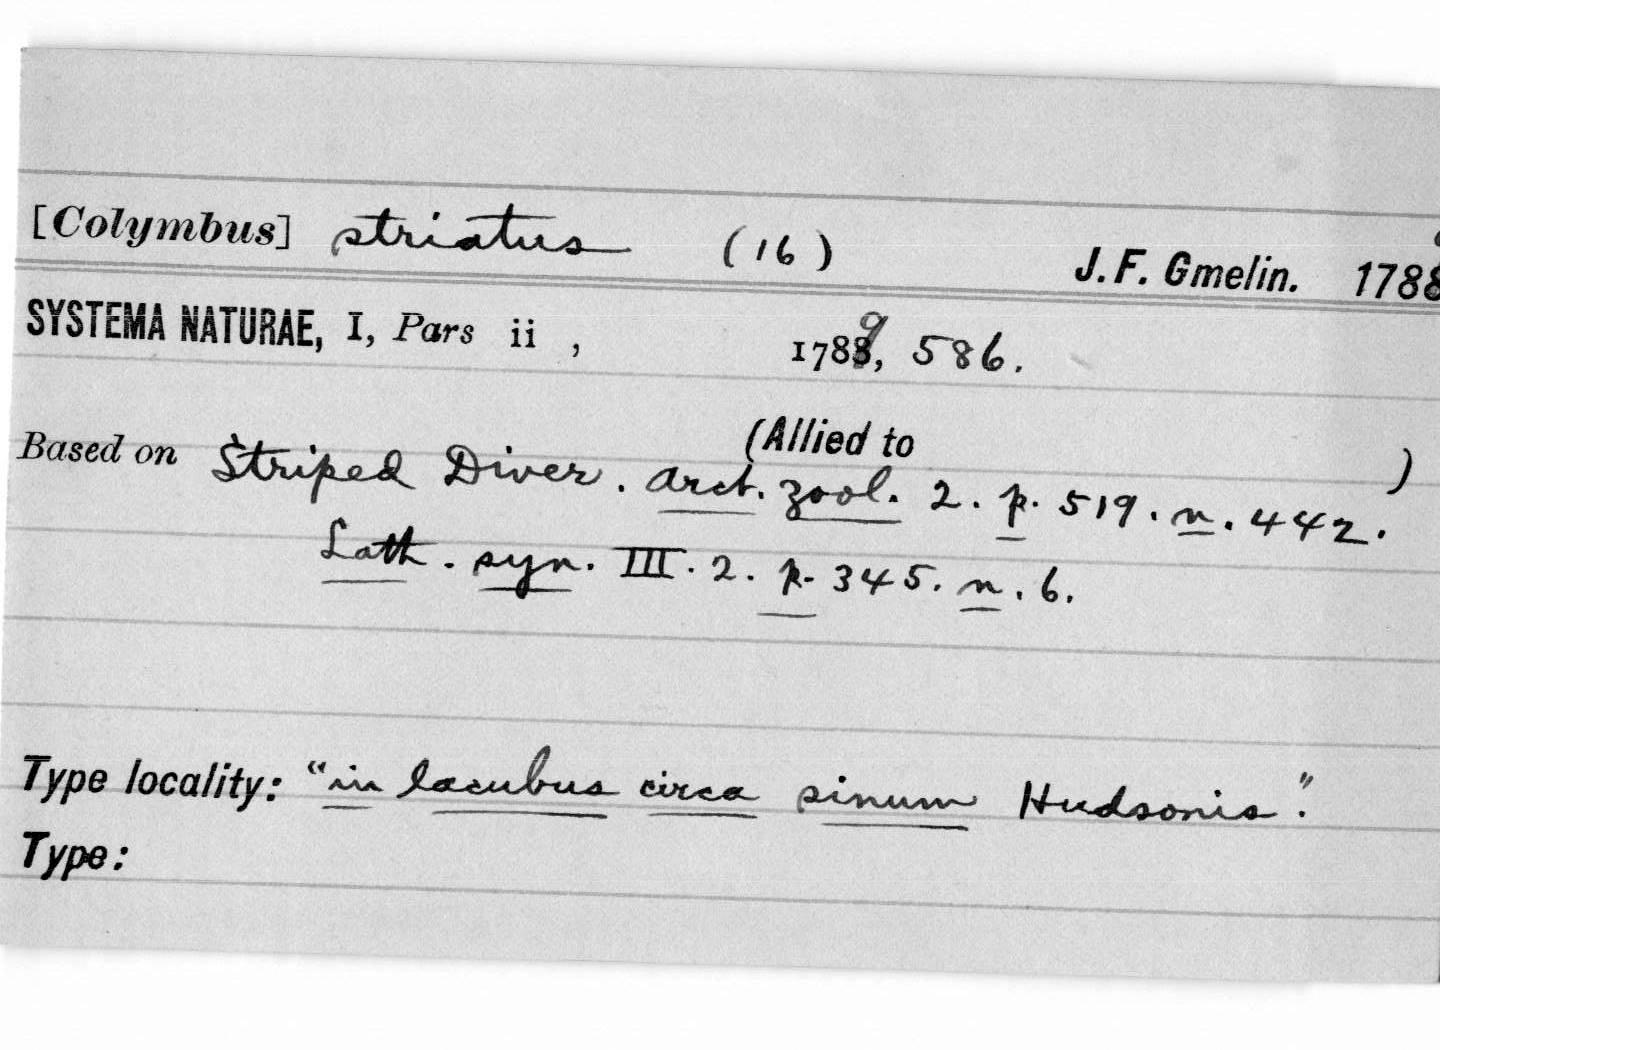 [Colymbus] striatus (16) J. F. Gmelin. 1788
SYSTEMA NATURAE, I, Pars ii , 1789, 586.
(Allied to )
Based on Striped Diver. Arct. Zool. 2. p. 519. n. 442.
Lath. syn. III. 2. p. 345. n. 6.
Type locality: "in lacubus circa sinum Hudsonis".
Type: